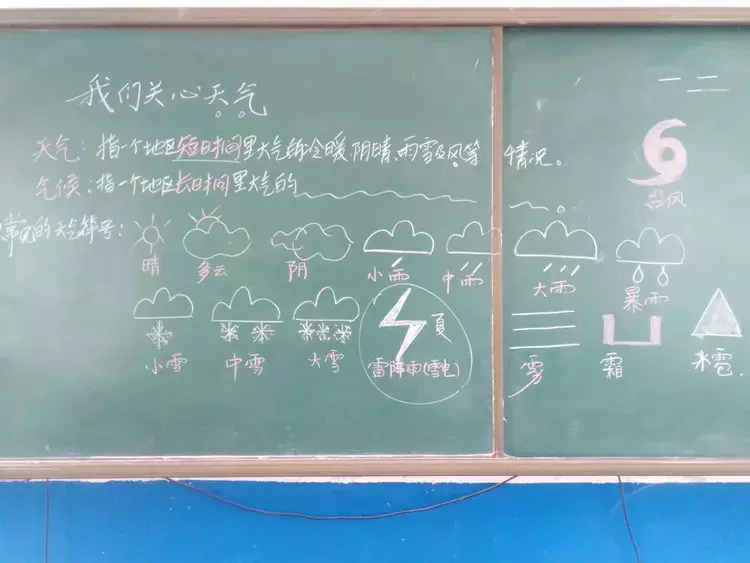 我们关心天气
一二
天气：指一个地区短时间里大气的冷暖,阴晴,雨雪及风等情况。
气候：指一个地区长时间里大气的
台风
常见的天气符号：
晴 多云 阴 小雨 中雨 大雨 暴雨
小雪 中雪 大雪 雷阵雨(雪电) 夏 雾 霜 冰雹.